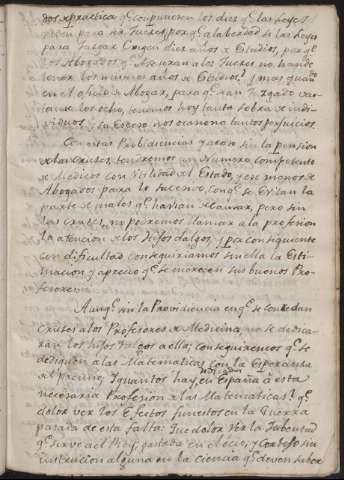 dos practica q.e componen los diez q.e las Leyes
piden para ser Jueces, porq.e a la verdad si las Leyes
para Juzgar exigen diez años de Estudios, porq.e
los Abogados q.e asesoran a los Jueces no han de
tener los mismos años de Estudios? y mas quando
en el oficio de Abogar, para q.e han Juzgado
los ocho, tenemos hoy tanta sobra de indi-
viduos, y su exceso nos ocasiona tantos perjuicios.
Con estas Providencias y la pension
de las Cruzes, tendremos un Numero competente
de Medicos con Utilidad al Estado, y de menos
Abogados para lo sucesivo, con q.e se evitan la
parte de males q.e havian de causar, pero sin
las cruzes, no podremos llamar a la profesion
la atencion de los Hijos dalgos, y por consiguiente
con dificultad conseguiriamos sin ella la Esti-
macion y aprecio q.e se merecen sus buenos Pro-
fesores.
Aunq.e sin la Providencia en q.e se concedan
Cruzes a los Profesores de Medicina, no se dedica-
ran los Hijos dalgos a ella; conseguiremos q.e se
dediquen a las Matematicas con la Esperanza
al premio; y quantos hay en España a esta
necesaria Profesion a las Matematicas! q.e
dolor ver los efectos funestos en la Guerra
pasada de esta falta! Que dolor ver la Jubentud
q.e sirve al Rey, gastada en el ocio, y cortejo sin
instruccion alguna en la ciencia q.e deven saber